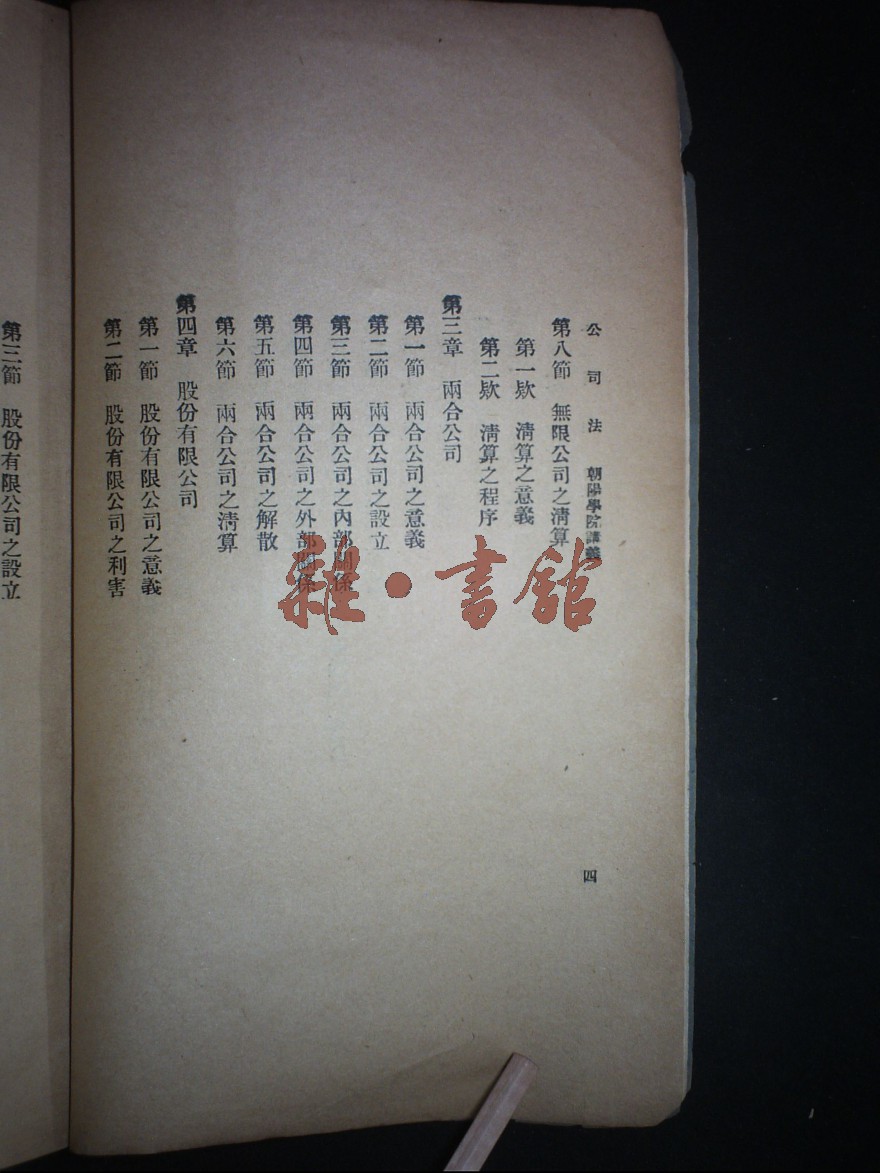 公司法 朝陽學院講義
第八節 無限公司之淸算
第一欵 淸算之意義
第二欵 淸算之程序
第三章 兩合公司
第一節 兩合公司之意義
第二節 兩合公司之設立
第三節 兩合公司之內部關係
第四節 兩合公司之外部關係
第五節 兩合公司之解散
第六節 兩合公司之淸算
第四章 股份有限公司
第一節 股份有限公司之意義
第二節 股份有限公司之利害
四
第三節 股份有限公司之設立
雜·書館